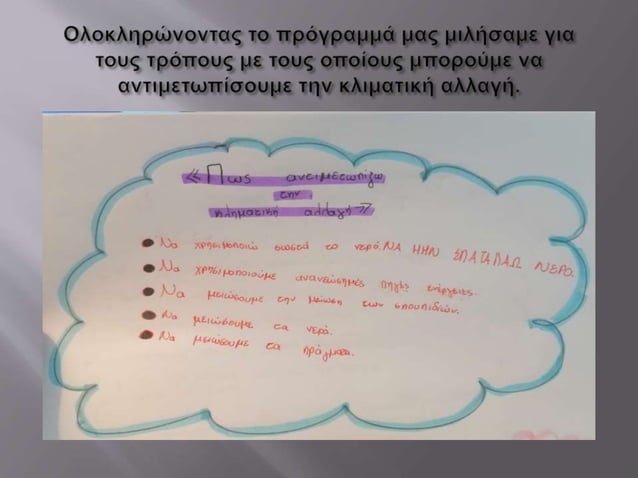 Ολοκληρώνοντας το πρόγραμμά μας μιλήσαμε για
τους τρόπους με τους οποίους μπορούμε να
αντιμετωπίσουμε την κλιματική αλλαγή.
«Πως αντιμετωπίζω
την
κληματική αλλαγή»
Να χρησιμοποιώ σωστά το νερό. ΝΑ ΜΗΝ ΣΠΑΤΑΛΑΩ ΝΕΡΟ.
Να χρησιμοποιούμε ανανεώσημές πηγές ενέργειες.
Να μειώσουμε την μείωση των σπουπιδιών.
Να μειώσουμε τα νερά.
Να μειώσουμε τα πράγματα.